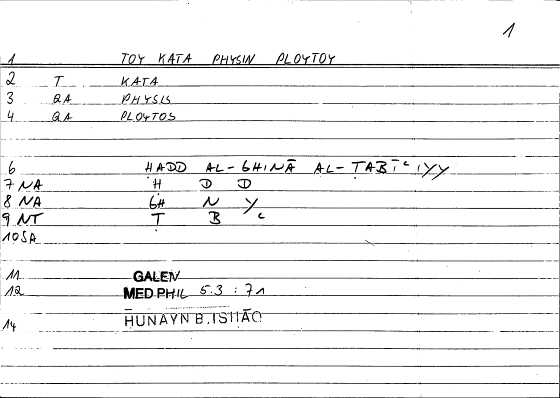 1
1 TOY KATA PHYSIN PLOYTOY
2 T KATA
3 QA PHYSIS
4 QA PLOYTOS
6 ḤADD AL-GHINĀ AL-ṬABĪʿIYY
7 NA Ḥ D D
8 NA GH N Y
9 NT Ṭ B ʿ
10 SA
11 GALEN
12 MED PHIL 5.3 : 71
14 ḤUNAYN B. ISḤĀQ